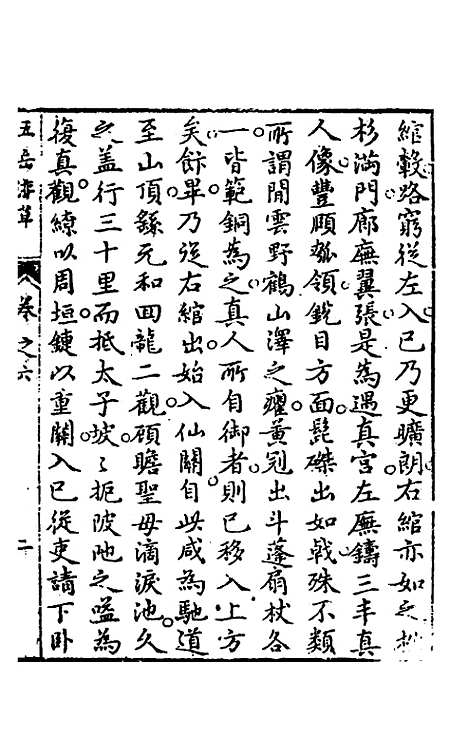 綰轂路窮從左入已乃更曠朗右綰亦如之
杉滿門廊廡翼張是為遇真宮左廡鑄三丰真
人像豐頤瓠領銳目方面髭磔出如戟殊不類
所謂閒雲野鶴山澤之癯黃冠出斗蓬扇杖各
一皆範銅為之真人所自御者則已移入上方
矣飰畢乃從右綰出始入仙關自此咸為馳道
至山頂繇元和回龍二觀頋瞻聖母滴淚池久
之盖行三十里而抵太子坡〻扼陂阤之嗌為
復真觀繚以周垣鍵以重關入已從吏請下卧
五岳游草 卷之六 二